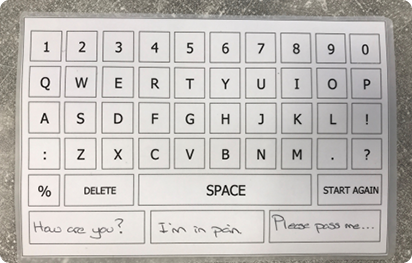 1 2 3 4 5 6 7 8 9 0
Q W E R T Y U I O P
A S D F G H J K L !
: Z X C V B N M . ?
% DELETE SPACE START AGAIN
How are you? I'm in pain Please pass me...